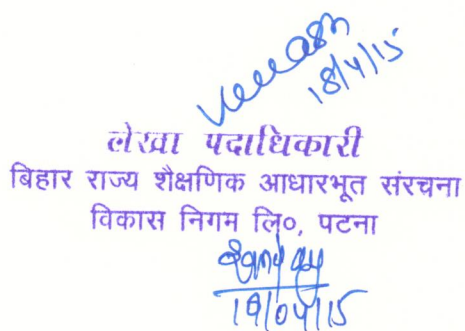 18/4/15
लेखा पदाधिकारी
बिहार राज्य शैक्षणिक आधारभूत संरचना
विकास निगम लि०, पटना
18/04/15